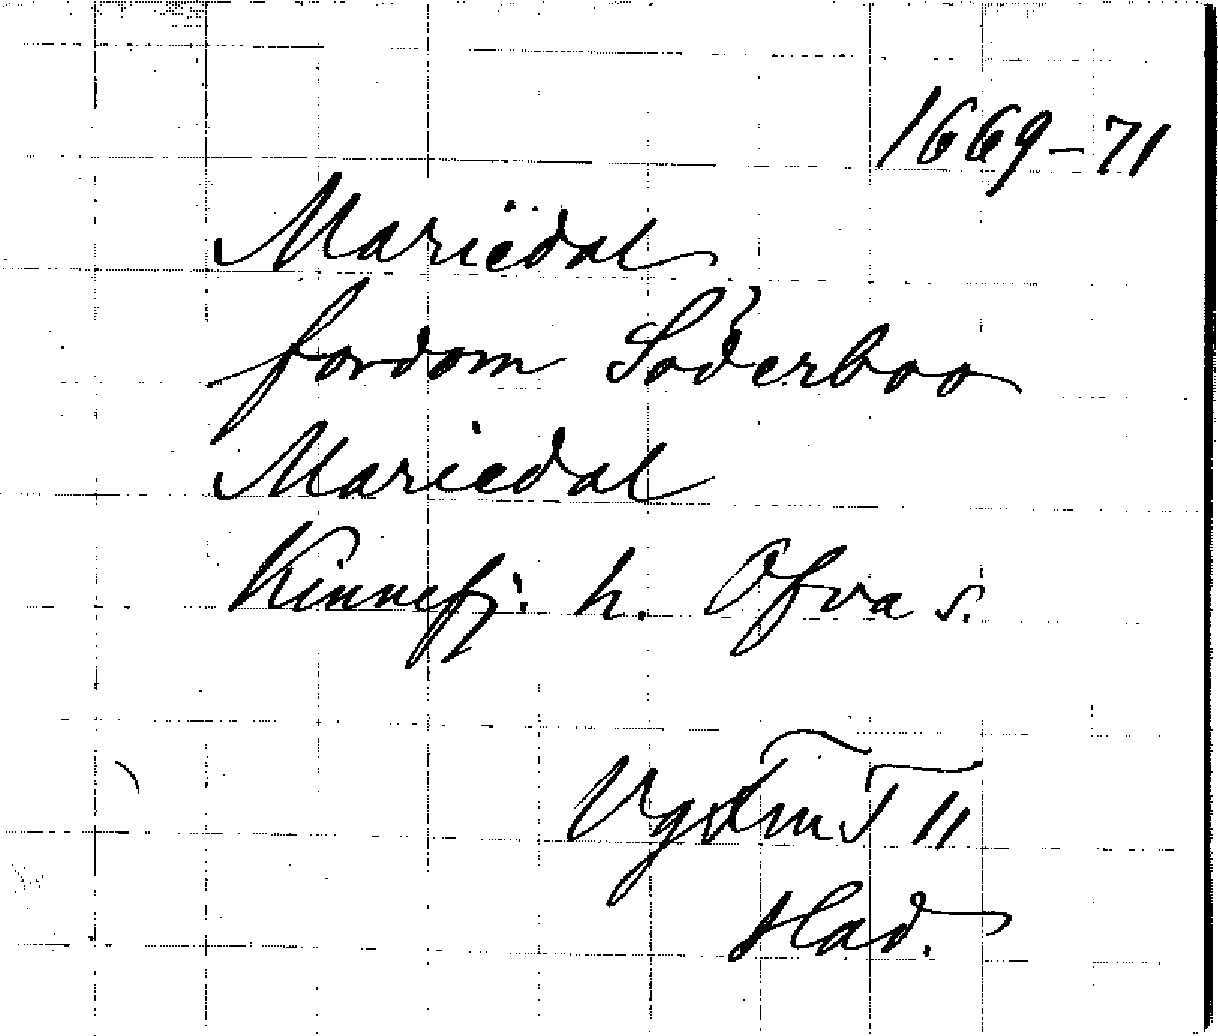 1669-71
Mariedal
fordom Söderboo
Mariedal
Kinnefj. h. Ofva s.
VgFmT II
Had.